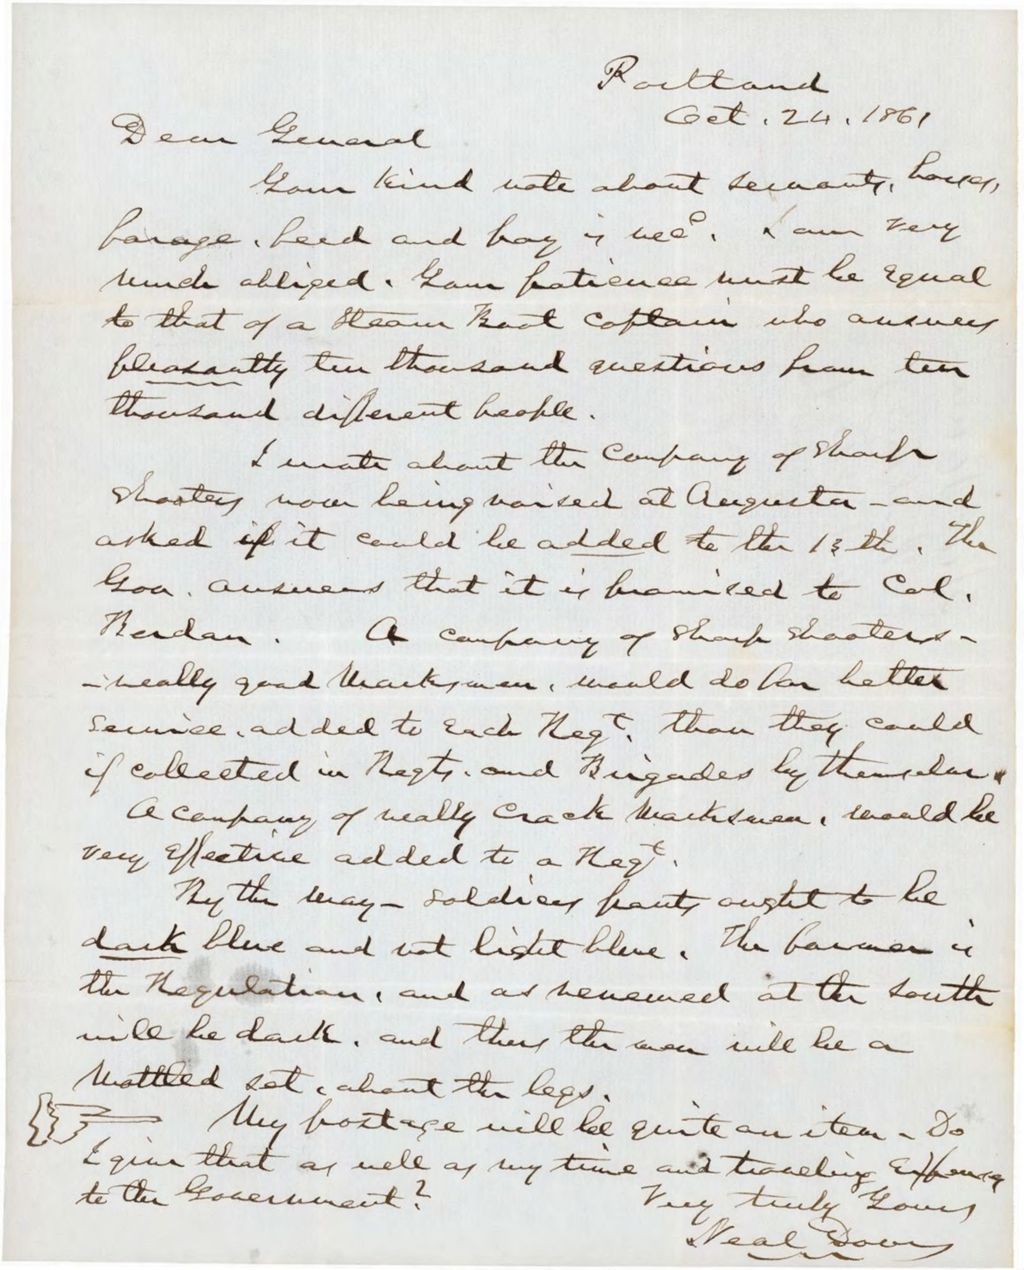 Portland
Oct. 24. 1861
Dear General
Your kind note about servants, horses,
forage, feed and pay is recd. I am very
much obliged. Your patience must be equal
to that of a Steam Boat Captain who answers
pleasantly ten thousand questions from ten
thousand different people.
I wrote about the Company of Sharp
Shooters now being raised at Augusta - and
asked if it could be added to the 13th. The
Gov. answers that it is promised to Col.
Berdan. A company of Sharp Shooters -
- really good Marksmen, would do far better
service, added to each Regt. than they could
if collected in Regts. and Brigades by themselves.
A company of really Crack Marksmen, would be
very effective added to a Regt.
By the way - soldiers pants ought to be
dark blue and not light blue. The former is
the Regulation, and as renewed at the South
will be dark, and thus the men will be a
Mottled set, about the legs.
My postage will be quite an item - Do
I give that as well as my time and traveling expenses
to the Government?
Very truly Yours
Neal Dow